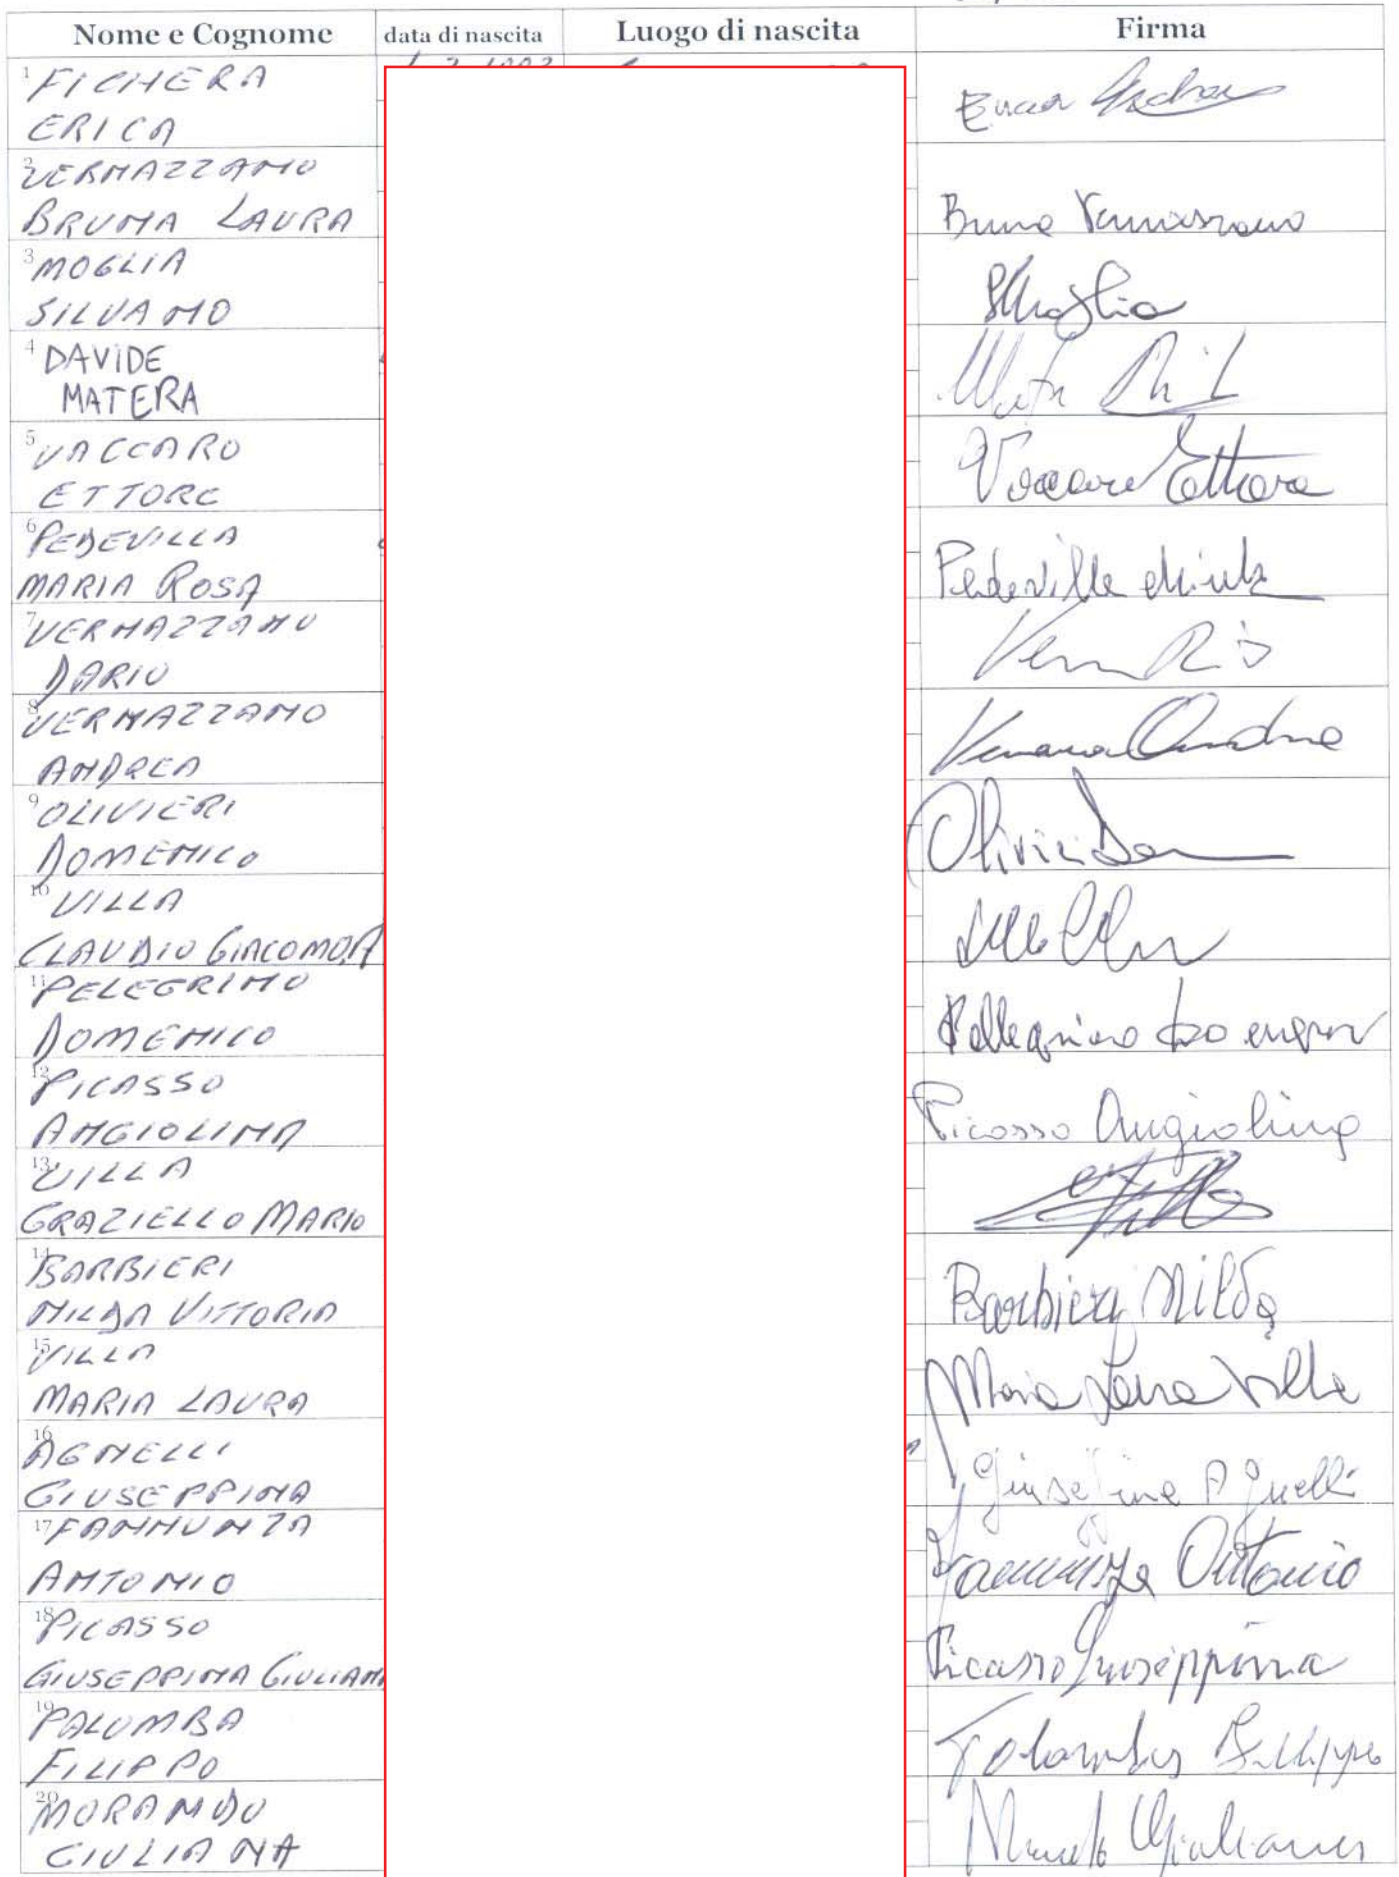 Nome e Cognome data di nascita Luogo di nascita Firma
1 FICHERA
ERICA Erica
2 VERNAZZANO
BRUNA LAURA Bruna Vernazzano
3 MOGLIA
SILVANO SMoglia
4 DAVIDE
MATERA
5 VACCARO
ETTORE Vaccaro Ettore
6 PEDEVILLA
MARIA ROSA Pedevilla
7 VERNAZZANO
DARIO
8 VERNAZZANO
ANDREA Andrea
9 OLIVIERI
DOMENICO Olivieri
10 VILLA
CLAUDIO GIACOMO
11 PELEGRINO
DOMENICO Pellegrino
12 PICASSO
ANGIOLINA Picasso Angiolina
13 VILLA
GRAZIELLO MARIO
14 BARBIERI
NILDA VITTORIA Barbieri Nilda
15 VILLA
MARIA LAURA Maria Laura Villa
16 AGNELLI
GIUSEPPINA Giuseppina Agnelli
17 FANNUNZA
ANTONIO Fannunza Antonio
18 PICASSO
GIUSEPPINA GIULIANA Picasso Giuseppina
19 PALUMBA
FILIPPO
20 MORANDO
GIULIANA Giuliana